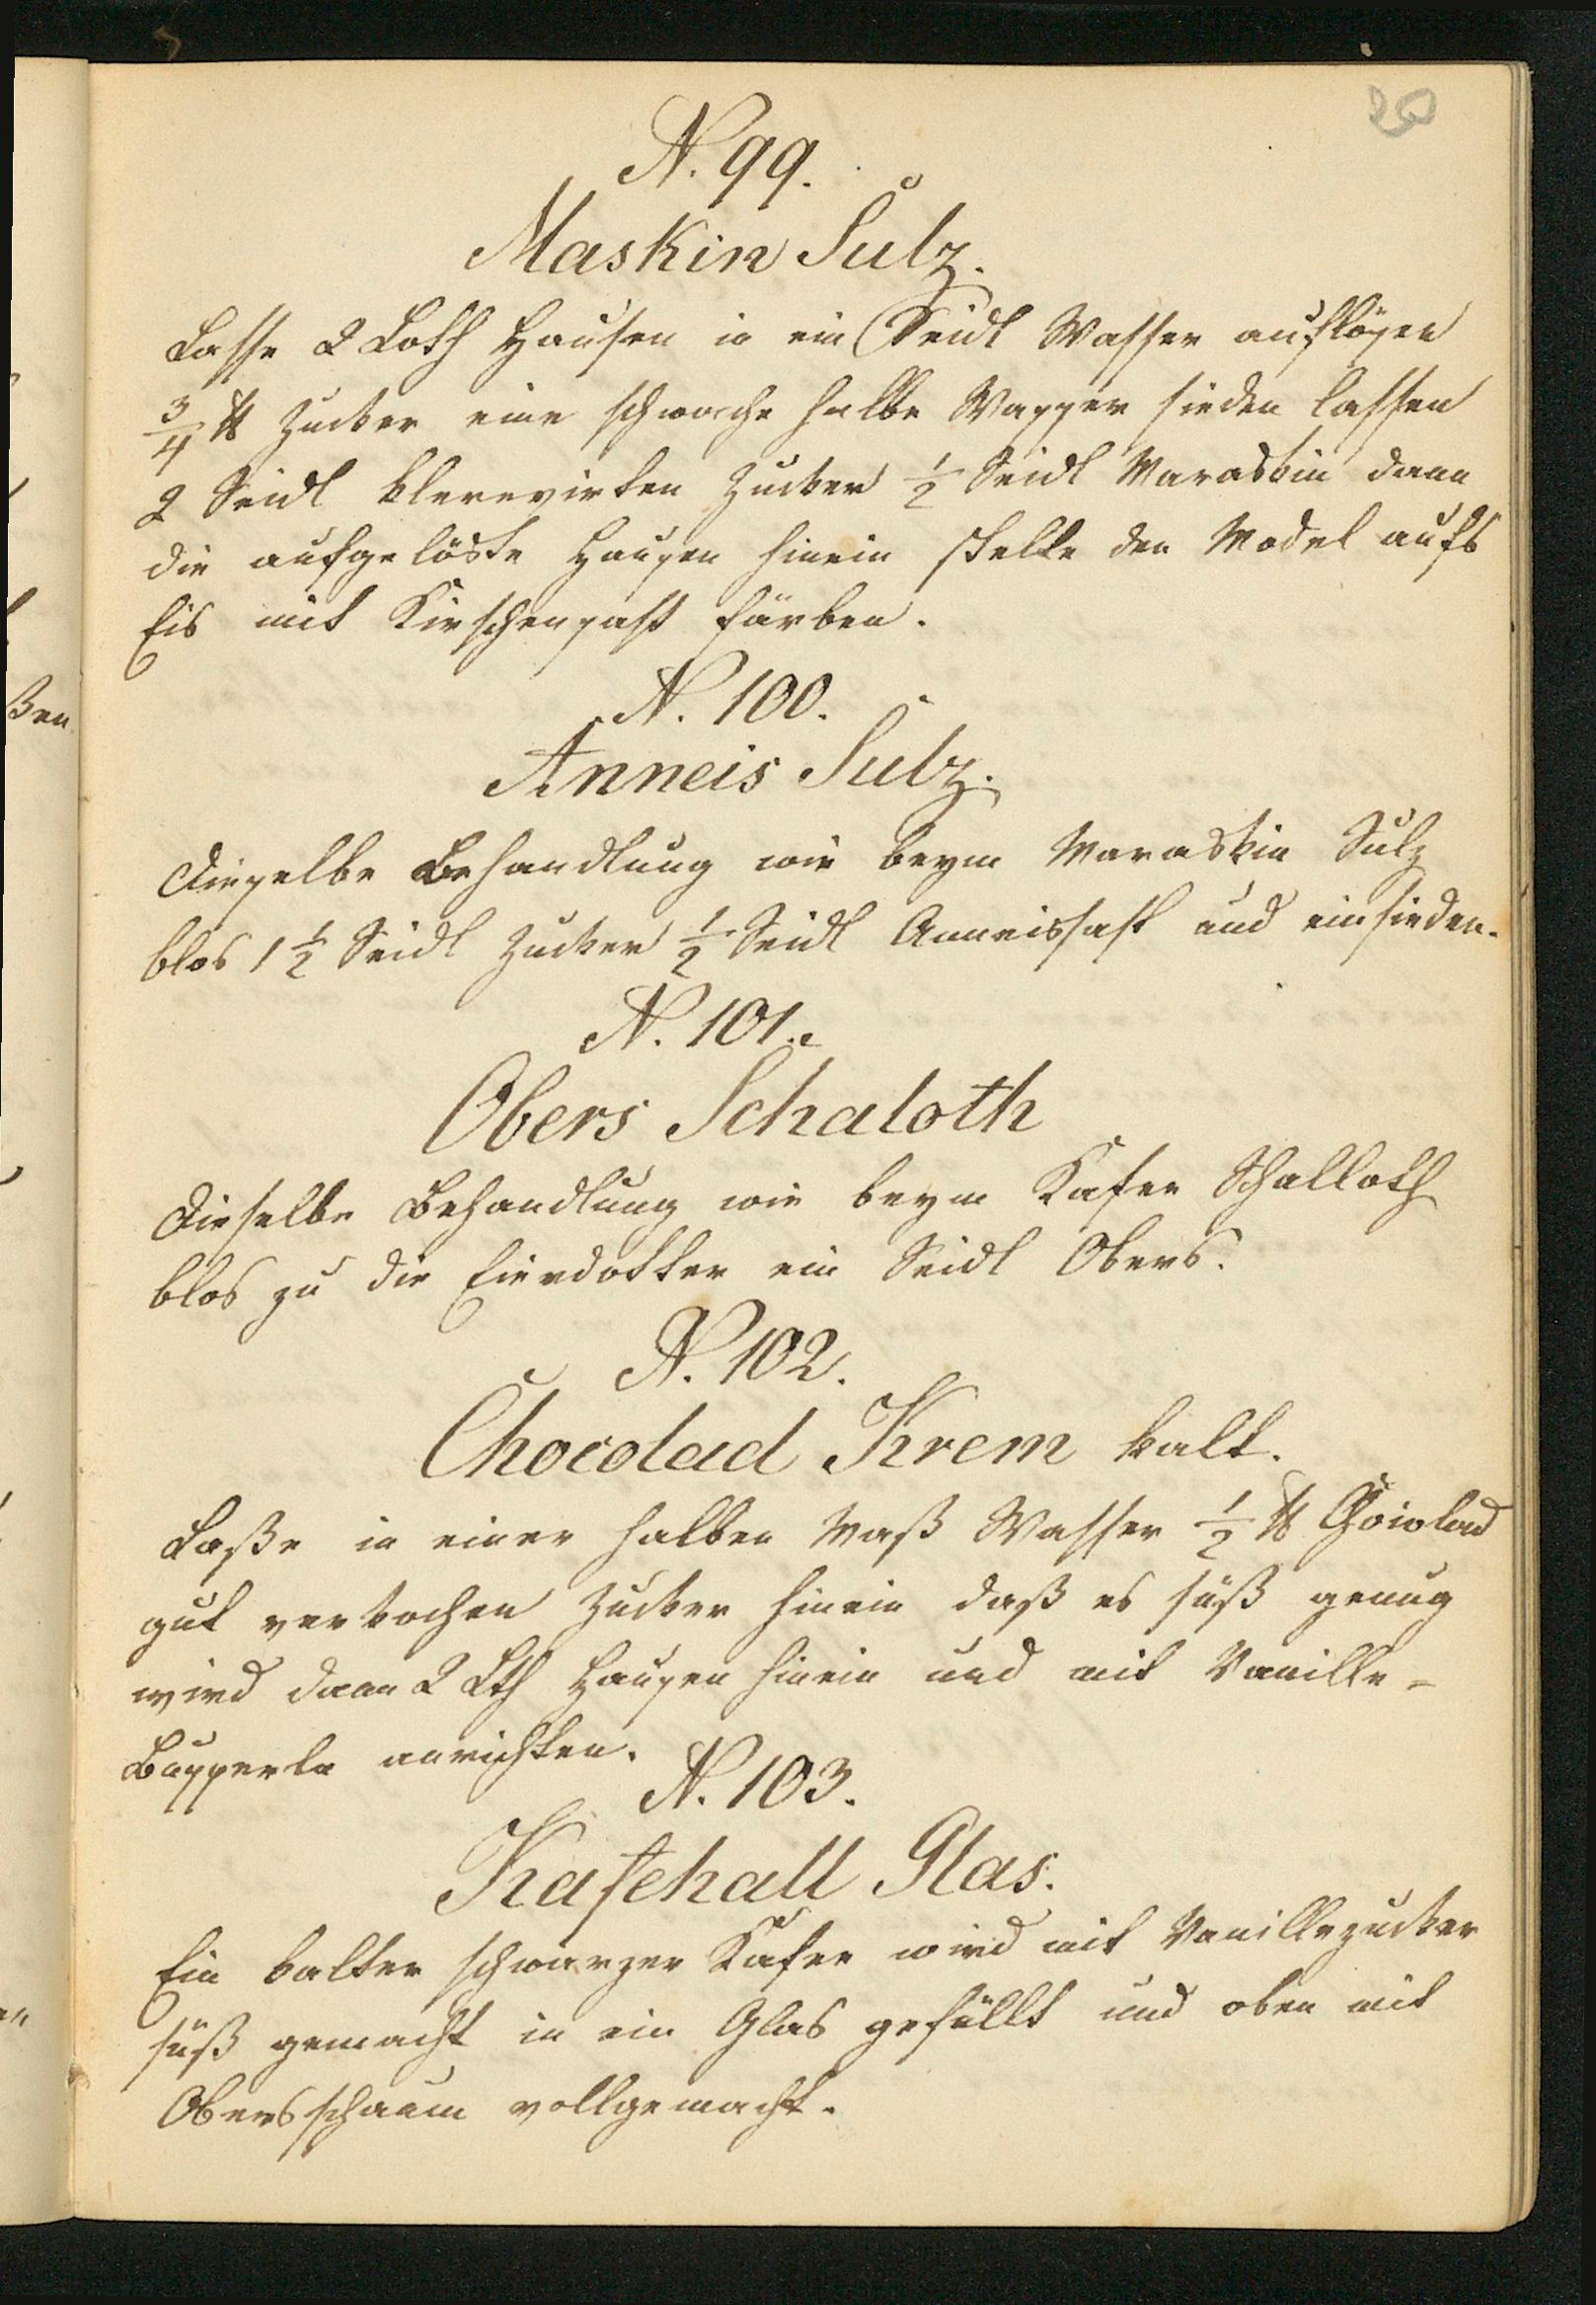 20
N. 99.
Maskin Sulz.
Lasse 2 Loth Hausen in ein Seidl Wasser auflösen
3/4 ℔ Zucker eine schwache halbe Wasser sieden lassen
2 Seidl klerevirten Zucker 1/2 Seidl Maraskin dann
die aufgelöste Hausen hinein stelle den Model aufs
Eis mit Kirschensaft färben.
N. 100.
Anneis Sulz.
Dieselbe Behandlung wie beym Maraskin Sulz
blos 1 1/2 Seidl Zucker 1/2 Seidl Anneissaft und einsieden.
N. 101.
Obers Schaloth
Dieselbe Behandlung wie beym Kafee Schalloth
blos zu die Eierdotter ein Seidl Obers.
N. 102.
Chocolad Krem kalt.
Laße in einer halben Maß Wasser 1/2 ℔ Chocolad
gut verkochen Zucker hinein daß es süß genug
wird dann 2 Lth Hausen hinein und mit Vanille-
Busserln anrichten.
N. 103.
Kafehall Glas.
Ein kalter schwarzer Kafee wird mit Vanillezucker
süß gemacht in ein Glas gefüllt und oben mit
Obersschaum vollgemacht.
ßen